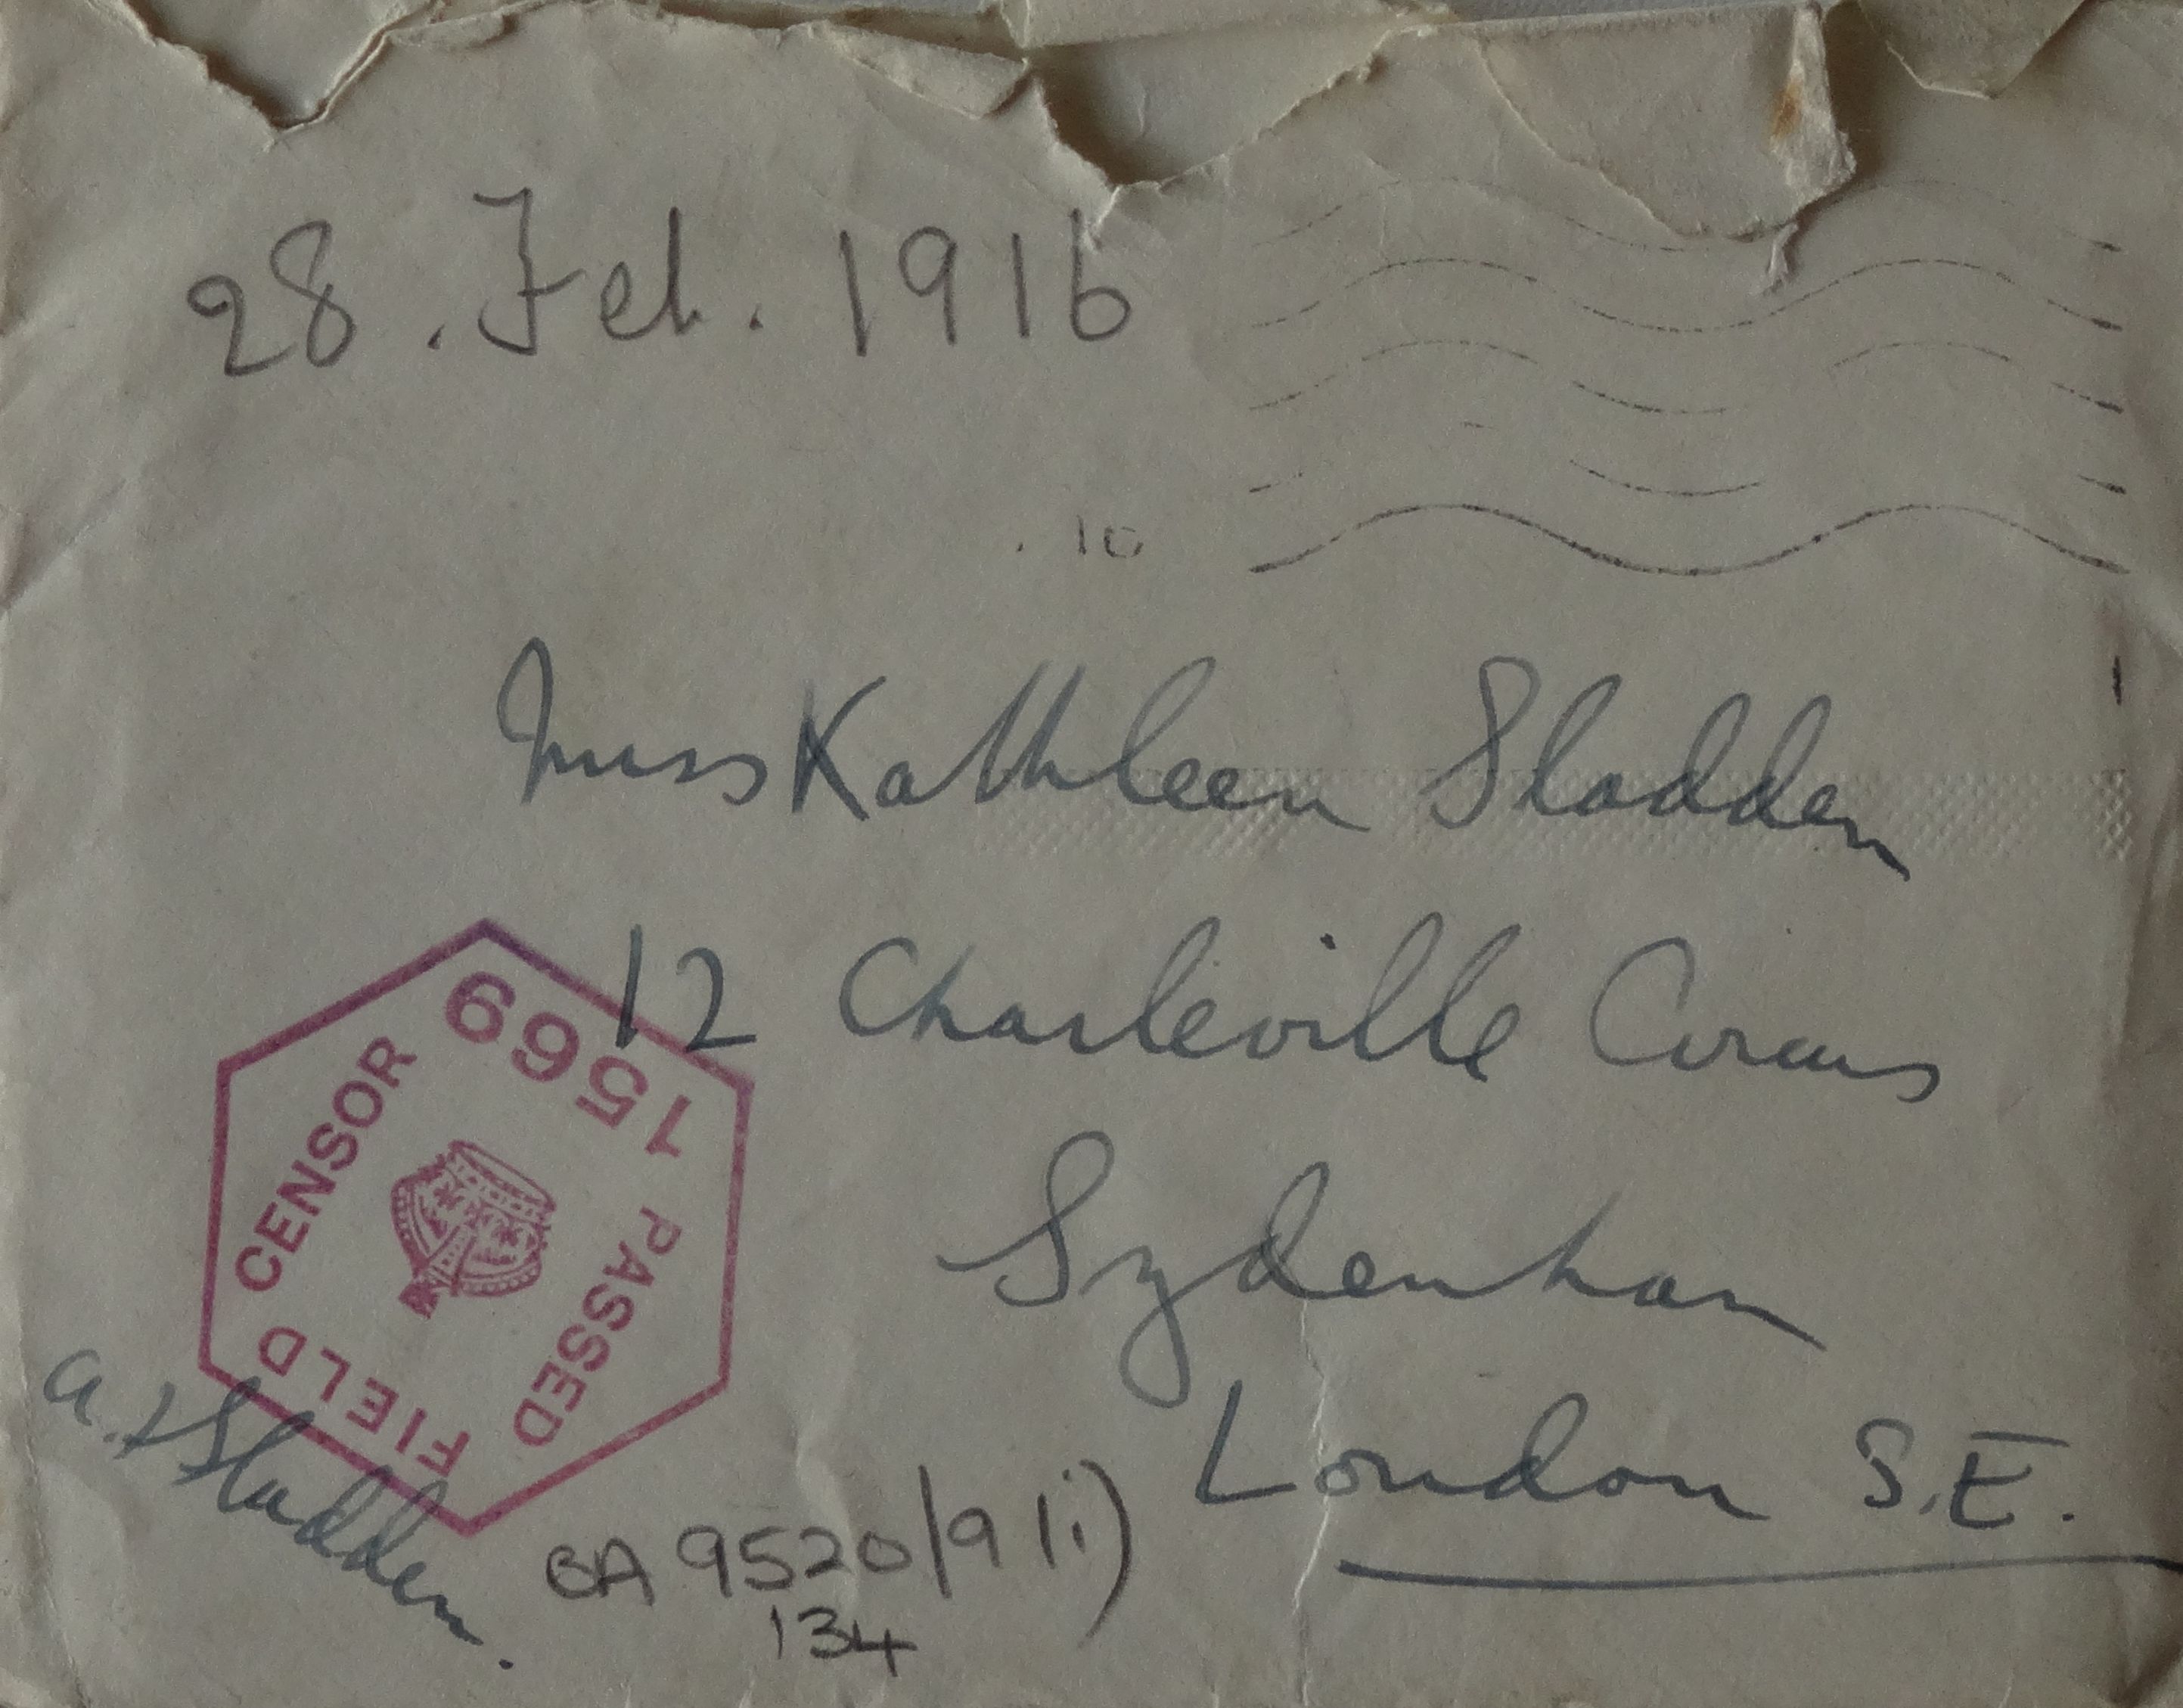 28. Feb. 1916
10
Miss Kathleen Sladden
12 Charleville Circus
Sydenham
London S.E.
PASSED
FIELD
CENSOR
1569
a. Sladden.
BA 9520/9 (i)
134